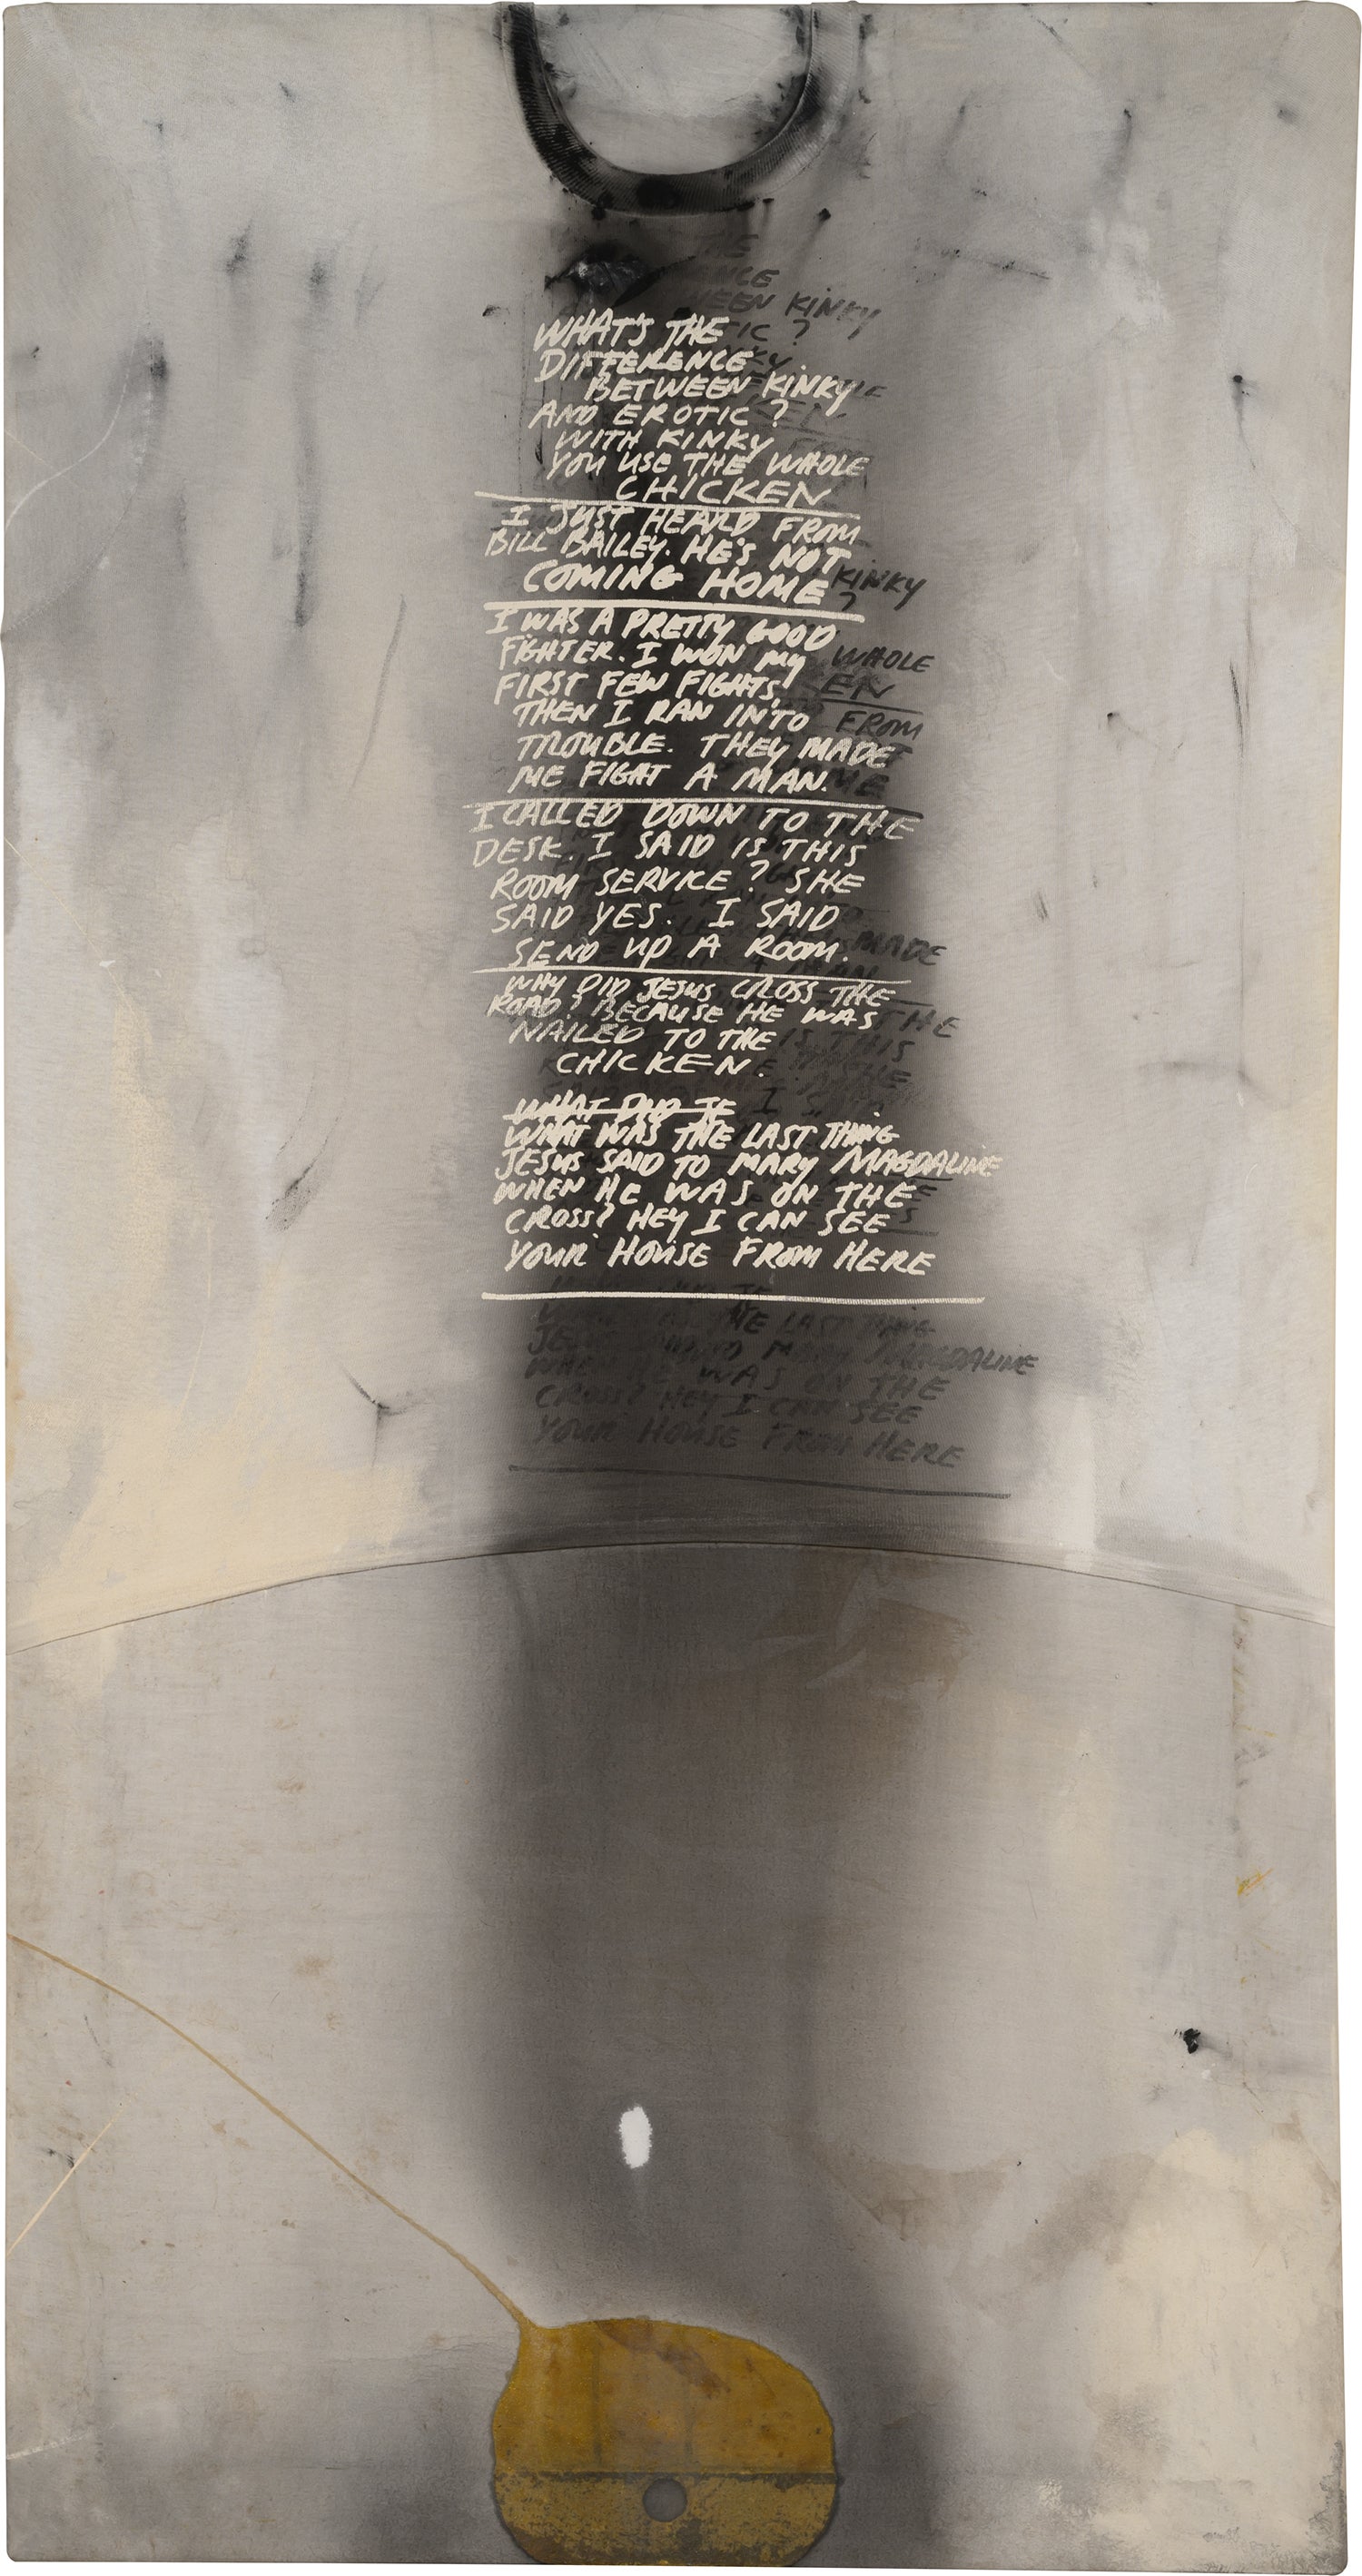 WHAT'S THE
DIFFERENCE
BETWEEN KINKY
AND EROTIC?
WITH KINKY
YOU USE THE WHOLE
CHICKEN
I JUST HEARD FROM
BILL BAILEY. HE'S NOT
COMING HOME
I WAS A PRETTY GOOD
FIGHTER. I WON MY
FIRST FEW FIGHTS
THEN I RAN INTO
TROUBLE. THEY MADE
ME FIGHT A MAN.
I CALLED DOWN TO THE
DESK. I SAID IS THIS
ROOM SERVICE? SHE
SAID YES. I SAID
SEND UP A ROOM.
WHY DID JESUS CROSS THE
ROAD? BECAUSE HE WAS
NAILED TO THE
CHICKEN.
WHAT DID JE
WHAT WAS THE LAST THING
JESUS SAID TO MARY MAGDALINE
WHEN HE WAS ON THE
CROSS? HEY I CAN SEE
YOUR HOUSE FROM HERE
THE LAST THING
JESUS SAID TO MARY MAGDALINE
WHEN HE WAS ON THE
CROSS? HEY I CAN SEE
YOUR HOUSE FROM HERE